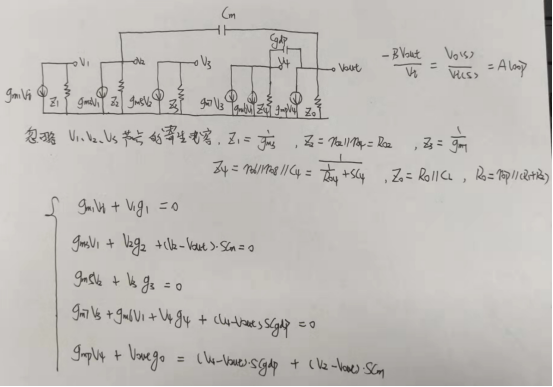 Cm
Cgdp
V1
V2
V3
V4
Vout
gm1Vf
Z1
gm4V1
Z2
gm5V2
Z3
gm7V3
gm6V1
Z4
gmpV4
Zo
-βVout/Vf = Vo(s)/Vi(s) = Aloop
忽略 V1、V2、V3 节点的寄生电容, Z1 = 1/gm3 , Z2 = ro2//ro4 = Ro2 , Z3 = 1/gm7
Z4 = ro6//ro8//C4 = 1/(1/Ro4 + SC4) , Zo = Ro//CL , Ro = rop//(R1+R2)
gm1Vf + V1g1 = 0
gm5V1 + V2g2 + (V2-Vout)·SCm = 0
gm5V2 + V3 g3 = 0
gm7V3 + gm6V1 + V4g4 + (V4-Vout) SCgdp = 0
gmpV4 + Voutgo = (V4-Vout)·SCgdp + (V2-Vout)·SCm